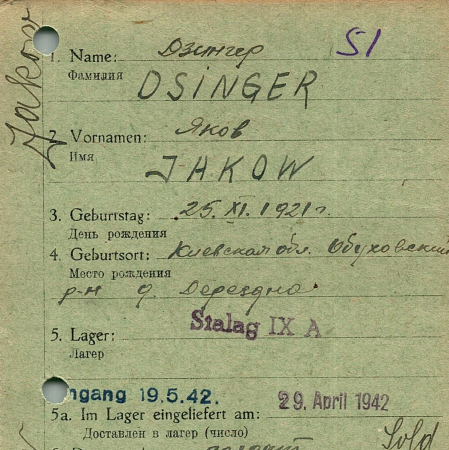 Jakow
1. Name: Дзингер
Фамилия
DSINGER
51
2. Vornamen: Яков
Имя
JAKOW
3. Geburtstag: 25. XI. 1921 г.
День рождения
4. Geburtsort: Киевская обл. Обуховский
Место рождения
р-н д.
5. Lager: Stalag IX A
Лагер
ngang 19.5.42.
5a. Im Lager eingeliefert am: 29. April 1942
Доставлен в лагер (число)
Sold